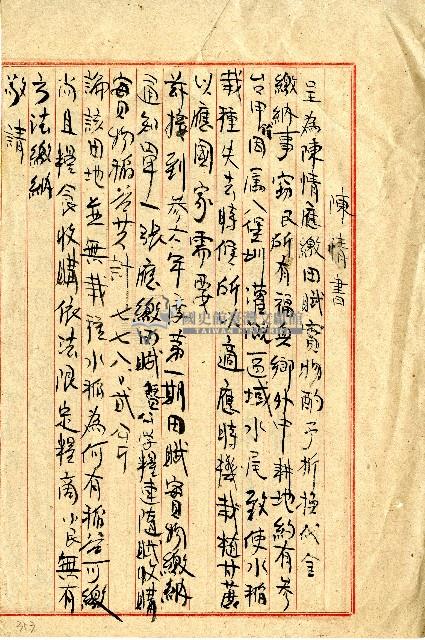 陳情書
呈為陳情應繳田賦實物酌予折換代金
繳納事竊民所有福興鄉外中耕地約有參
台甲因屬八堡圳灌溉區域水尾致使水稻
栽種失去時候所以適應時機栽植甘蔗
以應國家需要
茲接到參六年度第一期田賦實物繳納
通知單一張應繳田賦暨公學糧連隨賦收購
實物稻谷共計七七八〇貳公斤
論該田地並無栽種水稻為何有稻谷可繳
尚且糧食收購依法限定糧商小民無有
方法繳納
敬請
國史館臺灣文獻館
TAIWAN HISTORICA
353